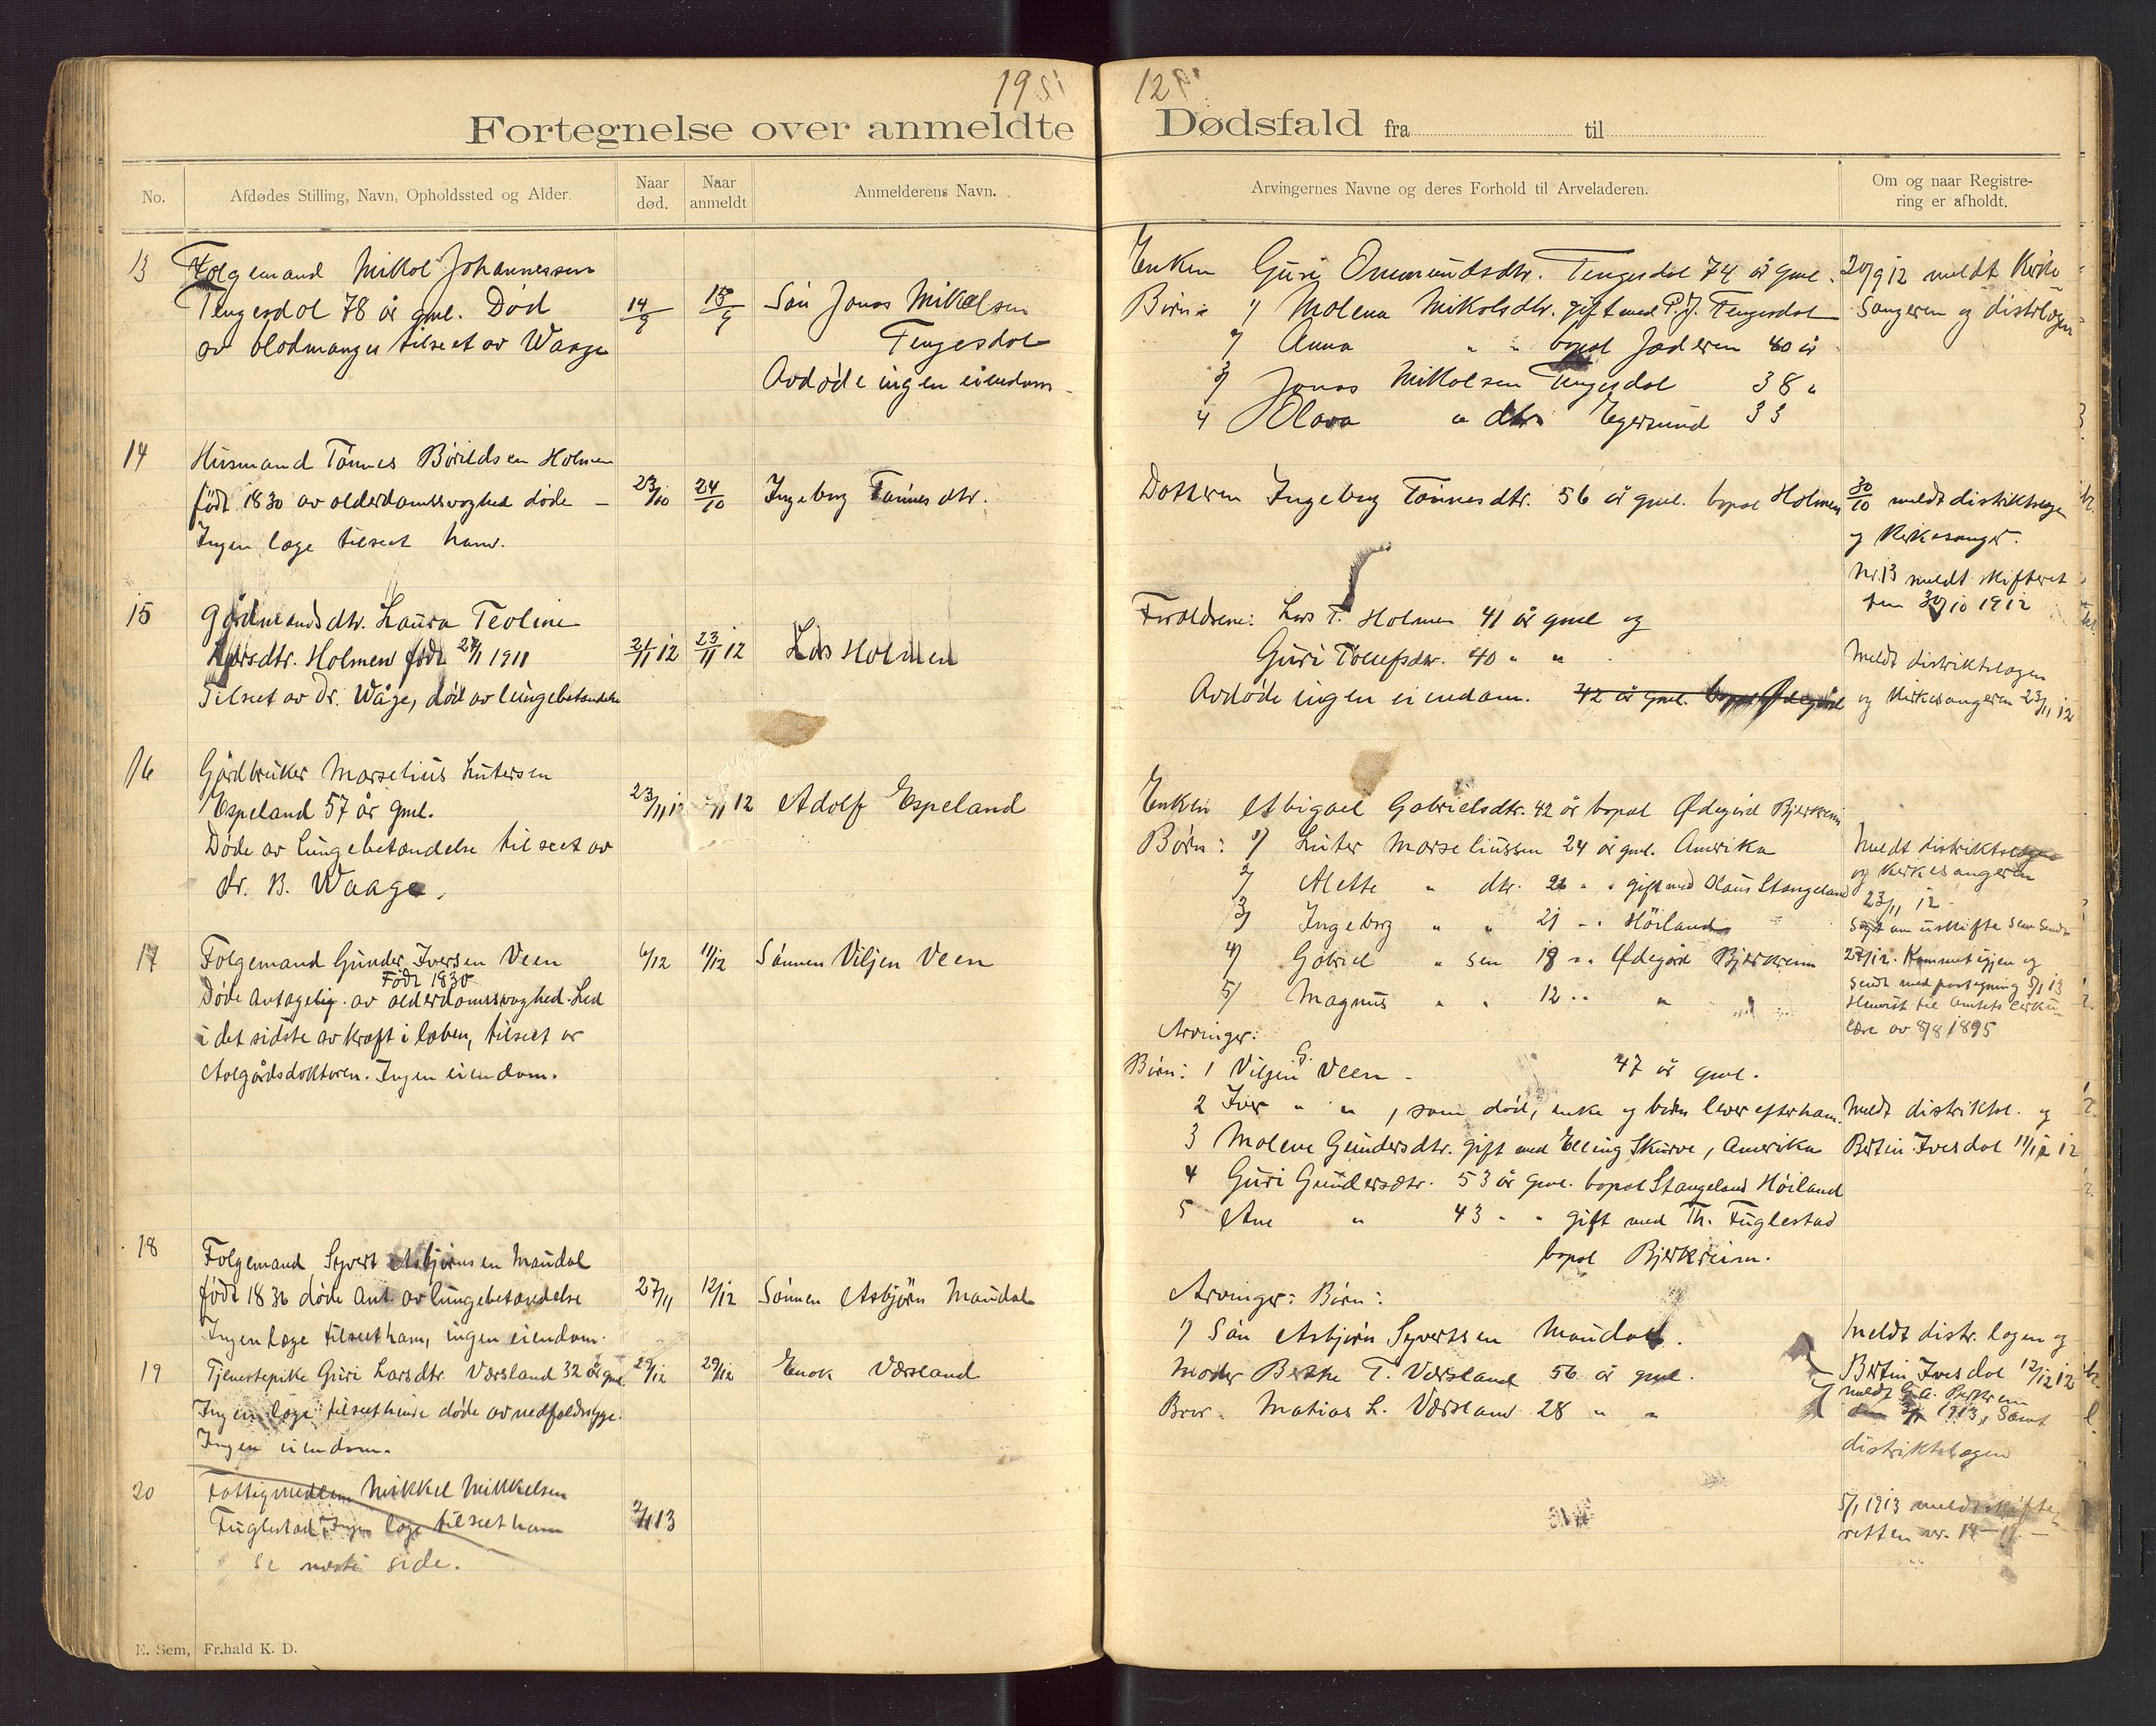 1912
Fortegnelse over anmeldte Dødsfald fra til
No.
Afdødes Stilling, Navn, Opholdssted og Alder.
Naar død.
Naar anmeldt
Anmelderens Navn.
Arvingernes Navne og deres Forhold til Arveladeren.
Om og naar Registrering er afholdt.
13
Folgemand Mikal Johannessen
Tengesdal 78 år gml. Død
av blodmangel tilseet av Waage
14/9
15/9
Søn Jonas Mikalsen
Tengesdal
Avdøde ingen eiendom
Enken Guri Ommundsdtr. Tengesdal 74 år gml.
Børn: 1/ Malena Mikalsdtr. gift med P. J. Tengesdal
2/ Anna " " bopæl Jæderen 40 år
3/ Jonas Mikalsen Tengesdal 38 "
4 Olava " dtr. Egersund 33
20/9 12 meldt kirke-
sangeren og distrlægen
14
Husmand Tønnes Børildsen Holmen
født 1830 av alderdomssvaghed døde –
Ingen læge tilseet ham.
23/10
24/10
Ingeborg Tønnesdtr.
Datteren Ingeborg Tønnesdtr. 56 år gml. bopæl Holmen
30/10 meldt distriktslæge
og kirkesanger.
Nr. 13 meldt skifteret
den 30/10 1912
15
Gårdmandsdtr. Laura Teoline
Larsdtr. Holmen født 27/1 1911
Tilseet av Dr. Wåge, død av lungebetændelse
21/11 12
23/11 12
Lars Holmen
Forældrene: Lars T. Holmen 41 år gml og
Guri Tollefsdtr. 40 " "
Avdøde ingen eiendom. 42 år gml. bopæl Ødegård
Meldt distriktslægen
og kirkesangeren 23/11 12
16
Gårdbruker Marselius Lutersen
Espeland 57 år gml.
Døde av lungebetændelse tilseet av
dr. B. Waage.
23/11 12
/11 12
Adolf Espeland
Enken Abigael Gabrielsdtr. 42 år bopæl Ødegård Bjerkreim
Børn: 1/ Luter Marseliussen 24 år gml. Amerika
2/ Alette " dtr. " " gift med Olaus Stangeland
3/ Ingeborg " " 21 " " Høiland
4/ Gabriel " søn 18 " " Ødegård Bjerkreim
5/ Magnus " " 12 " " "
Meldt distriktslægen
og kirkesangeren
23/11 12
Søgt om uskifte som sendt
27/12. Kommet igjen og
sendt med paategning 5/1 13
Henvist til Amtets cirku-
lære av 8/8 1895
17
Folgemand Gunder Iversen Veen
Født 1830
Døde antagelig av alderdomssvaghed. Led
i det sidste av kræft i læben, tilseet av
Aalgårdsdoktoren. Ingen eiendom.
6/12
11/12
Sønnen Viljen Veen
Arvinger:
Børn: 1 Viljen G. Veen 47 år gml.
2 Iver " " , som død, enke og børn lever efter ham.
3 Malene Gundersdtr. gift med Elling Skurve, Amerika
4 Guri Gundersdtr. 53 år gml. bopæl Stangeland Høiland
5 Ane " 43 " " gift med Th. Fuglestad
bopæl Bjerkreim.
Meldt distriktsl. og
Bertin Ivesdal 11/12 12
18
Folgemand Syvert Asbjørnsen Maudal
født 1836 døde Ant. av lungebetændelse
Ingen læge tilseet ham, ingen eiendom.
27/11
12/12
Sønnen Asbjørn Maudal
Arvinger: Børn:
1/ Søn Asbjørn Syvertsen Maudal.
Meldt distr. lægen og
Bertin Ivesdal 12/12 12
19
Tjenestepike Guri Larsdtr. Værsland 32 år gml.
Ingen læge tilseet hende døde av nedfaldssyge.
Ingen eiendom.
29/12
29/12
Enok Værsland
Moder Berthe T. Værsland 56 år gml.
Bror Matias L. Værsland 28 " "
meldt
den 1913, samt
distriktslægen
20
Fattigmedlem Mikkel Mikkelsen
Fuglestad, Ingen læge tilseet ham
se næste side.
2/1 13
5/1 1913 meldt skifte-
retten nr. 14 –
E. Sem, Fr.hald K. D.